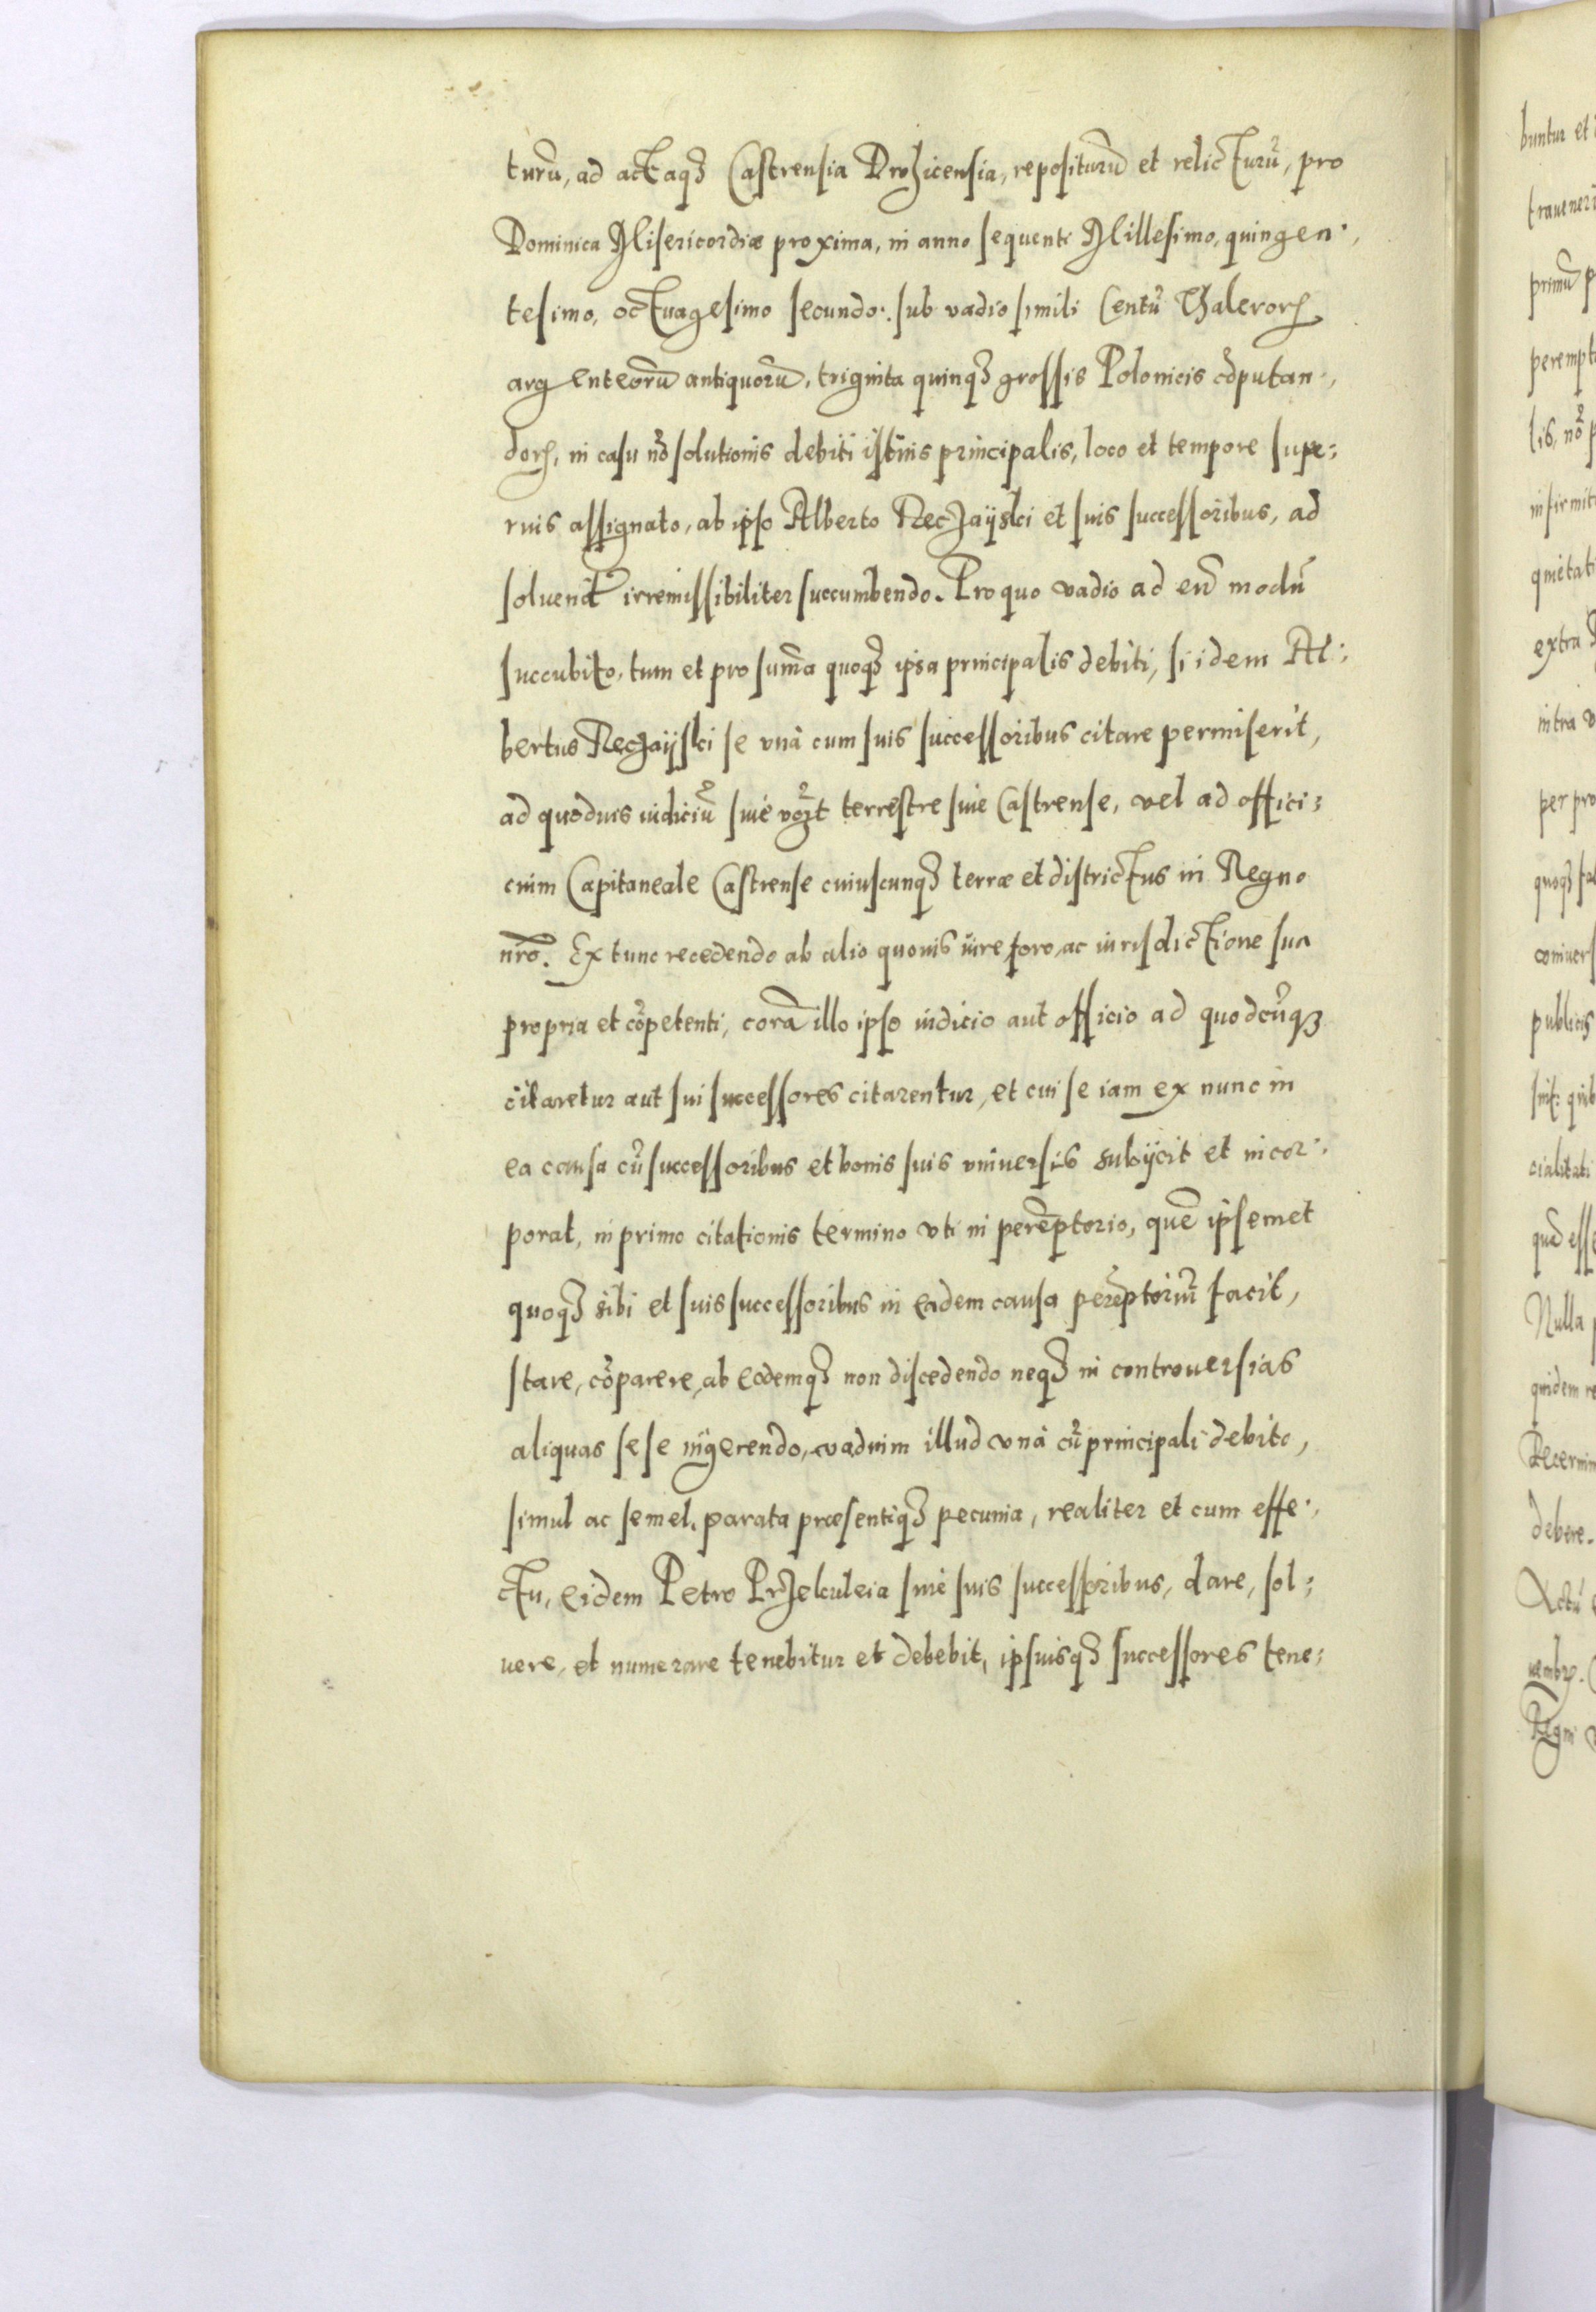 turũ, ad actaqȝ Castrensia Drohicensia, repositurũ et relicturũ, pro
Dominica Misericordiæ proxima, in anno sequenti Millesimo, quingen:,
tesimo, octuagesimo secundo: sub vadio simili Centũ Thalerorꝝ
argenteorũ antiquorũ, triginta quinqȝ grossis Polonicis cõputan:,
dorꝝ, in casu nõ solutionis debiti istius principalis, loco et tempore supe:
rius assignato, ab ipso Alberto Reczayski et suis successoribus, ad
soluend irremissibiliter succumbendo. Pro quo vadio ad eñ modũ
succubito, tum et pro sum̃a quoqȝ ipsa principalis debiti, si idem Al:
bertus Reczayski se vnà cum suis successoribus citare permiserit,
ad quoduis iudiciũ siue terrestre siue Castrense, vel ad offici:
cuim Capitaneale Castrense cuiuscunqȝ terræ et districtus in Regno
nr̃o. Ex tunc recedendo ab alio quouis iure, foro, ac iurisdictione sua
propria et cõpetenti, corã illo ipso iudicio aut officio ad quodcũqȝ
citaretur aut sui successores citarentur, et cui se iam ex nunc in
ea causa cũ successoribus et bonis suis vniuersis subijcit et incor:
porat, in primo citationis termino vti in perẽptorio, quẽ ipsemet
quoqȝ sibi et suis successoribus in eadem causa perẽptoriũ facit,
stare, cõparere, ab eodemqȝ non discedendo neqȝ in controuersias
aliquas sese ingerendo, vadium illud vnà cũ principali debito,
simul ac semel, parata præsentiqȝ pecunia, realiter et cum effe:,
ctu, eidem Petro Przekuleia siue suis successoribus, dare, sol:
uere, et numerare tenebitur et debebit, ipsiusqȝ successores tene:
buntur et
primũ p
perempt
lis, nõ p
infirmit
quietati
extra
intra v
per pro
quoqȝ
publicis
cialitati
Nulla
quidem re
Decernim
debere.
Actũ
Regni